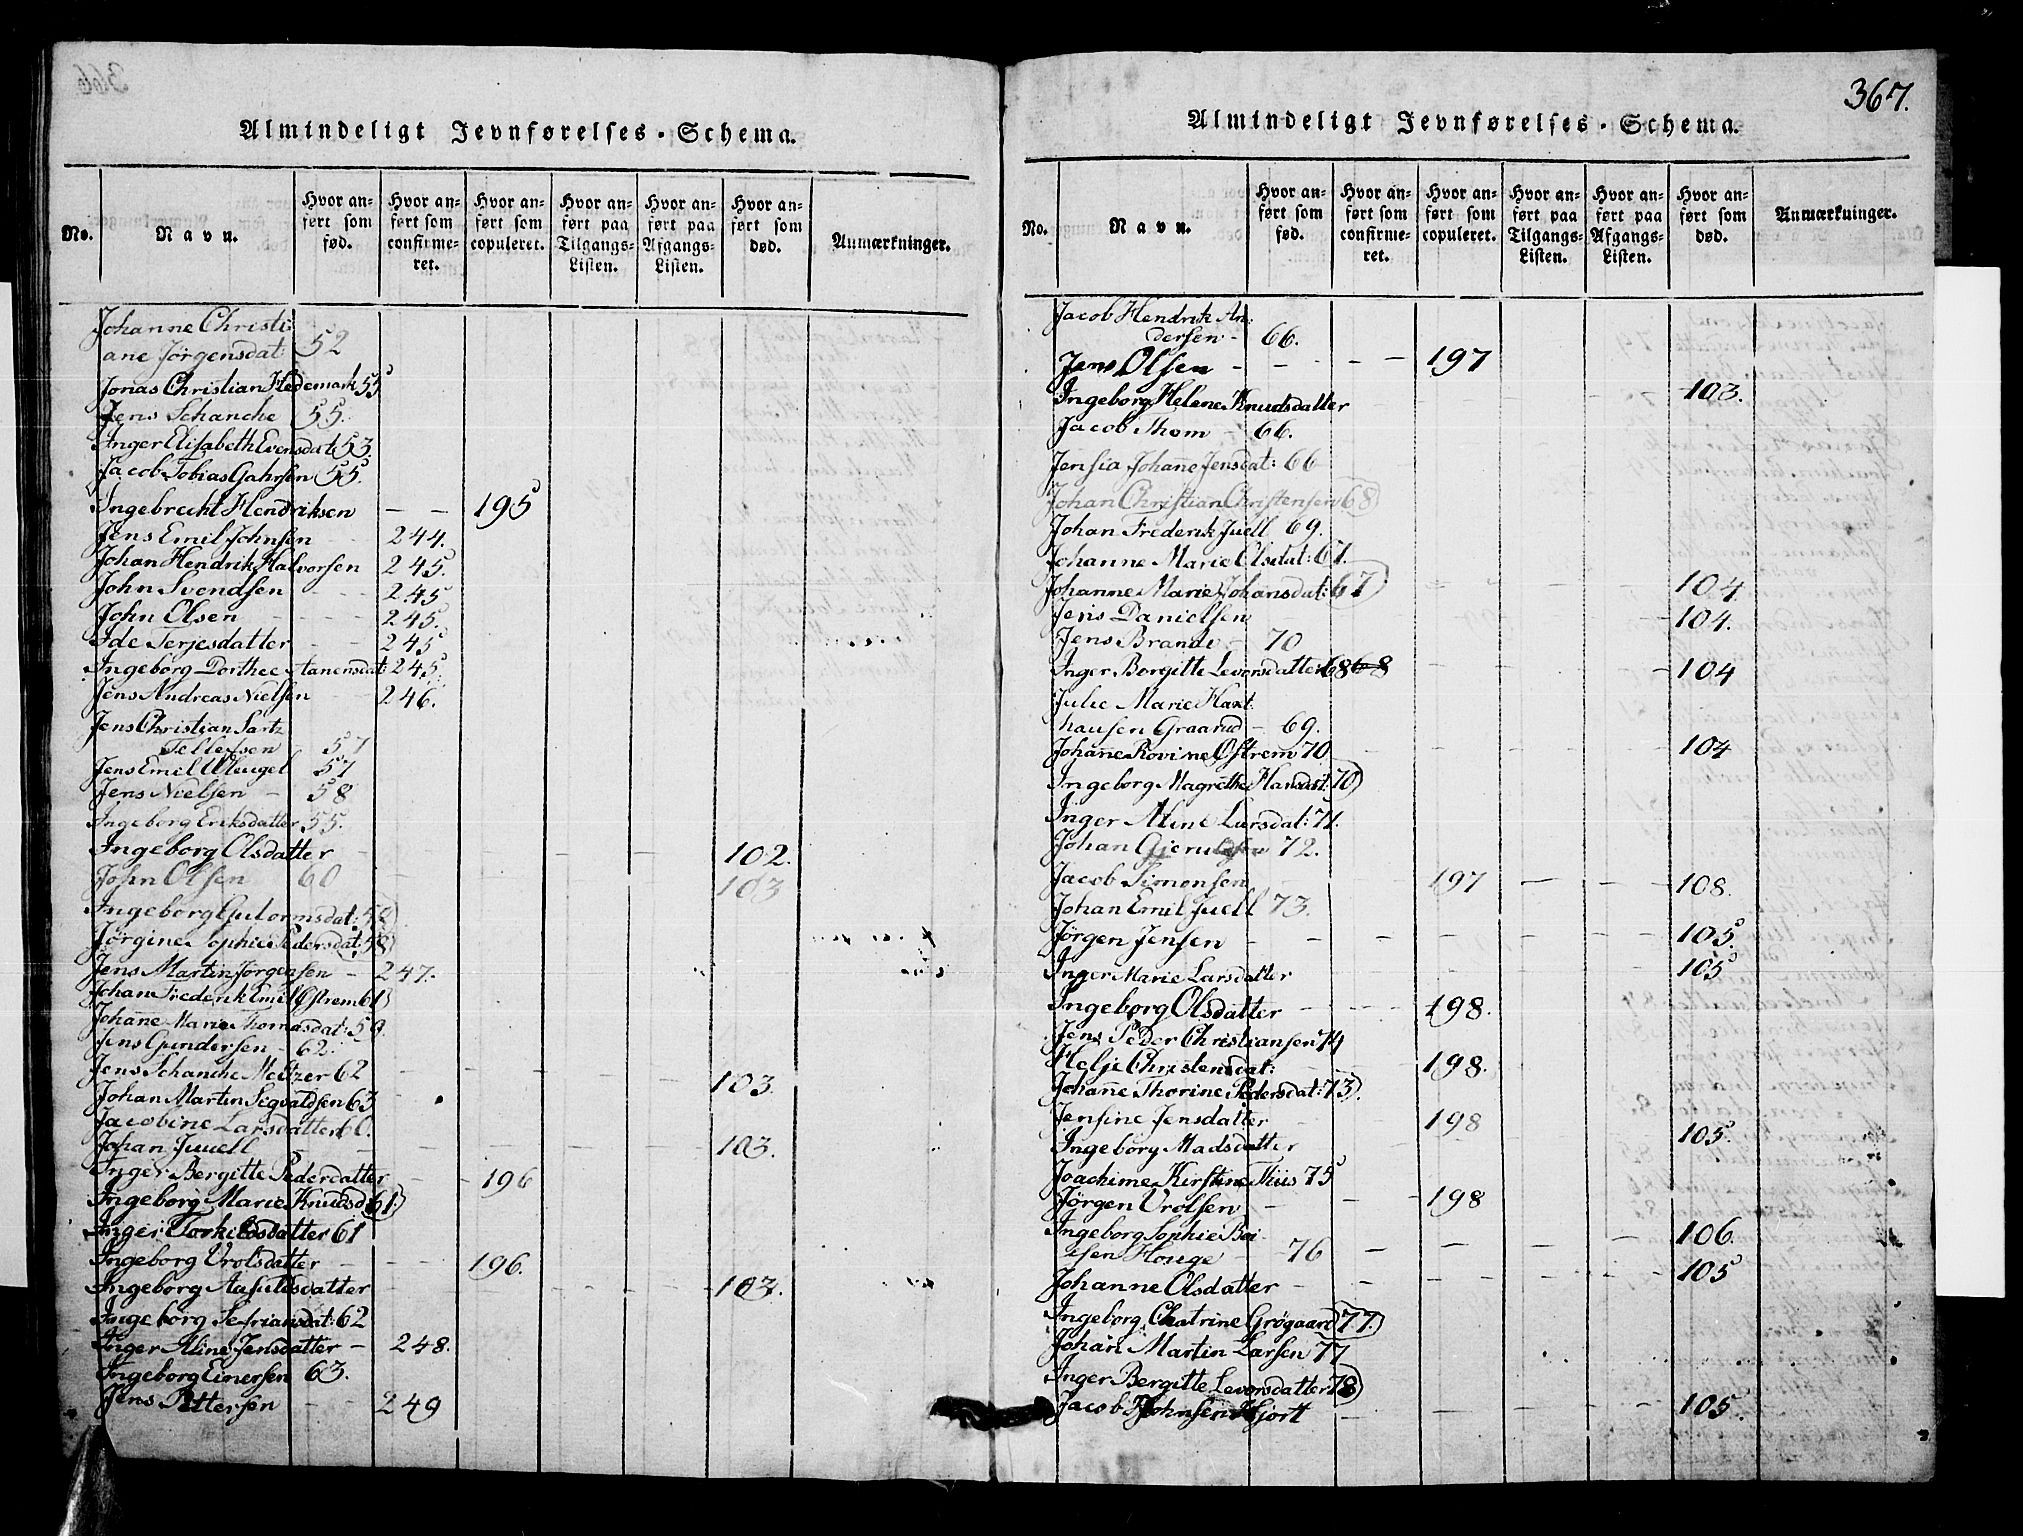 Almindeligt Jevnførelses-Schema.
No. Navn. Hvor anført som fød. Hvor anført som confirmeret. Hvor anført som copuleret. Hvor anført paa Tilgangs-Listen. Hvor anført paa Afgangs-Listen. Hvor anført som død. Anmærkninger.
Johanne Christi
ane Jörgensdat: 52
Jonas Christian Hedemark 55
Jens Schanche 55.
Inger Elisabeth Evensdat: 53.
Jacob Tobias Gahrsen 55.
Ingebrecht Hendriksen - - 195
Jens Emil Johnsen - 244.
Johan Hendrik Halvorsen 245.
John Svendsen - - - 245
John Olsen - - - - 245.
Ide Terjesdatter - - 245
Ingeborg Dorthee Stanensdat: 245.
Jens Andreas Nielsen - 246.
Jens Christian Sartz
Tellefsen 57
Jens Emil Wleugel 57
Jens Nielsen - 58
Ingeborg Eriksdatter 55.
Ingeborg Olsdatter - - - - - 102.
John Olsen 60 - - - - 103
Ingeborg Gutormsdat: 52
Jørgine Sophie Pedersdat: 58
Jens Martin Jörgensen - 247.
Johan Frederik Emil Østrem 61
Johan̄e Marie Thomasdat: 59.
Jens Gundersen - 62.
Jens Schanche Meltzer 62 - - - - 103.
Johan Martin Segvaldsen 63
Jacobine Larsdatter 60.
Johan Juuell - - - - - 103.
Inger Bergitte Pedersdatter - - 196
Ingeborg Marie Knudsd: 61
Inger Torkildsdatter 61
Ingeborg Vrolsdatter - - - 196.
Ingeborg Aasuldsdatter - - - - 103.
Ingeborg Sefriansdat: 62
Inger Aline Jensdatter - 248.
Ingeborg Einersen 63.
Jens Pettersen - - 249
367.
Almindeligt Jevnførelses-Schema.
No. Navn. Hvor anført som fød. Hvor anført som confirmeret. Hvor anført som copuleret. Hvor anført paa Tilgangs-Listen. Hvor anført paa Afgangs-Listen. Hvor anført som død. Anmærkninger.
Jacob Hendrik An:
dersen - 66.
Jens Olsen - - - - 197
Ingeborg Helene Knudsdatter - - - - 103.
Jacob Thom - 66.
Jensia Johan̄e Jensdat: 66
Johan Christian Christensen 68
Johan Frederik Juell 69.
Johanne Marie Olsdat: 67.
Johanne Marie Johansdat: 67 - - - - 104
Jens Danielsen - - - - - 104.
Jens Brandt - 70
Inger Borgitte Levorsdatter 68 68 - - - - 104
Julie Marie Haxt
hausen Graarud - 69.
Johan̄e Rovine Østrem 70 - - - - 104
Ingeborg Magrethe Hansdat: 70
Inger Aline Larsdat: 71.
Johan Gjerulfsen 72.
Jacob Simonsen - - 197 - - 108.
Johan Emil Juell 73.
Jörgen Jensen - - - - - 105.
Inger Marie Larsdatter 105
Ingeborg Olsdatter - - - 198.
Jens Peder Christiansen 74
Helje Christensdat: - - 198.
Johan̄e Thorine Pedersdat: 73.
Jensine Jensdatter - - - 198
Ingeborg Madsdatter 105.
Joachime Kirstine Thiis 75
Jørgen Vrolsen - - - 198
Ingeborg Sophie Boi
esen Houge - 76 - - - - 106.
Johanne Olsdatter - - - - - 105
Ingeborg Chatrine Grøgaard 77.
Johan Martin Larsen 77
Inger Bergitte Levorsdatter 78
Jacob Johnsen Hjort - - - - 105.